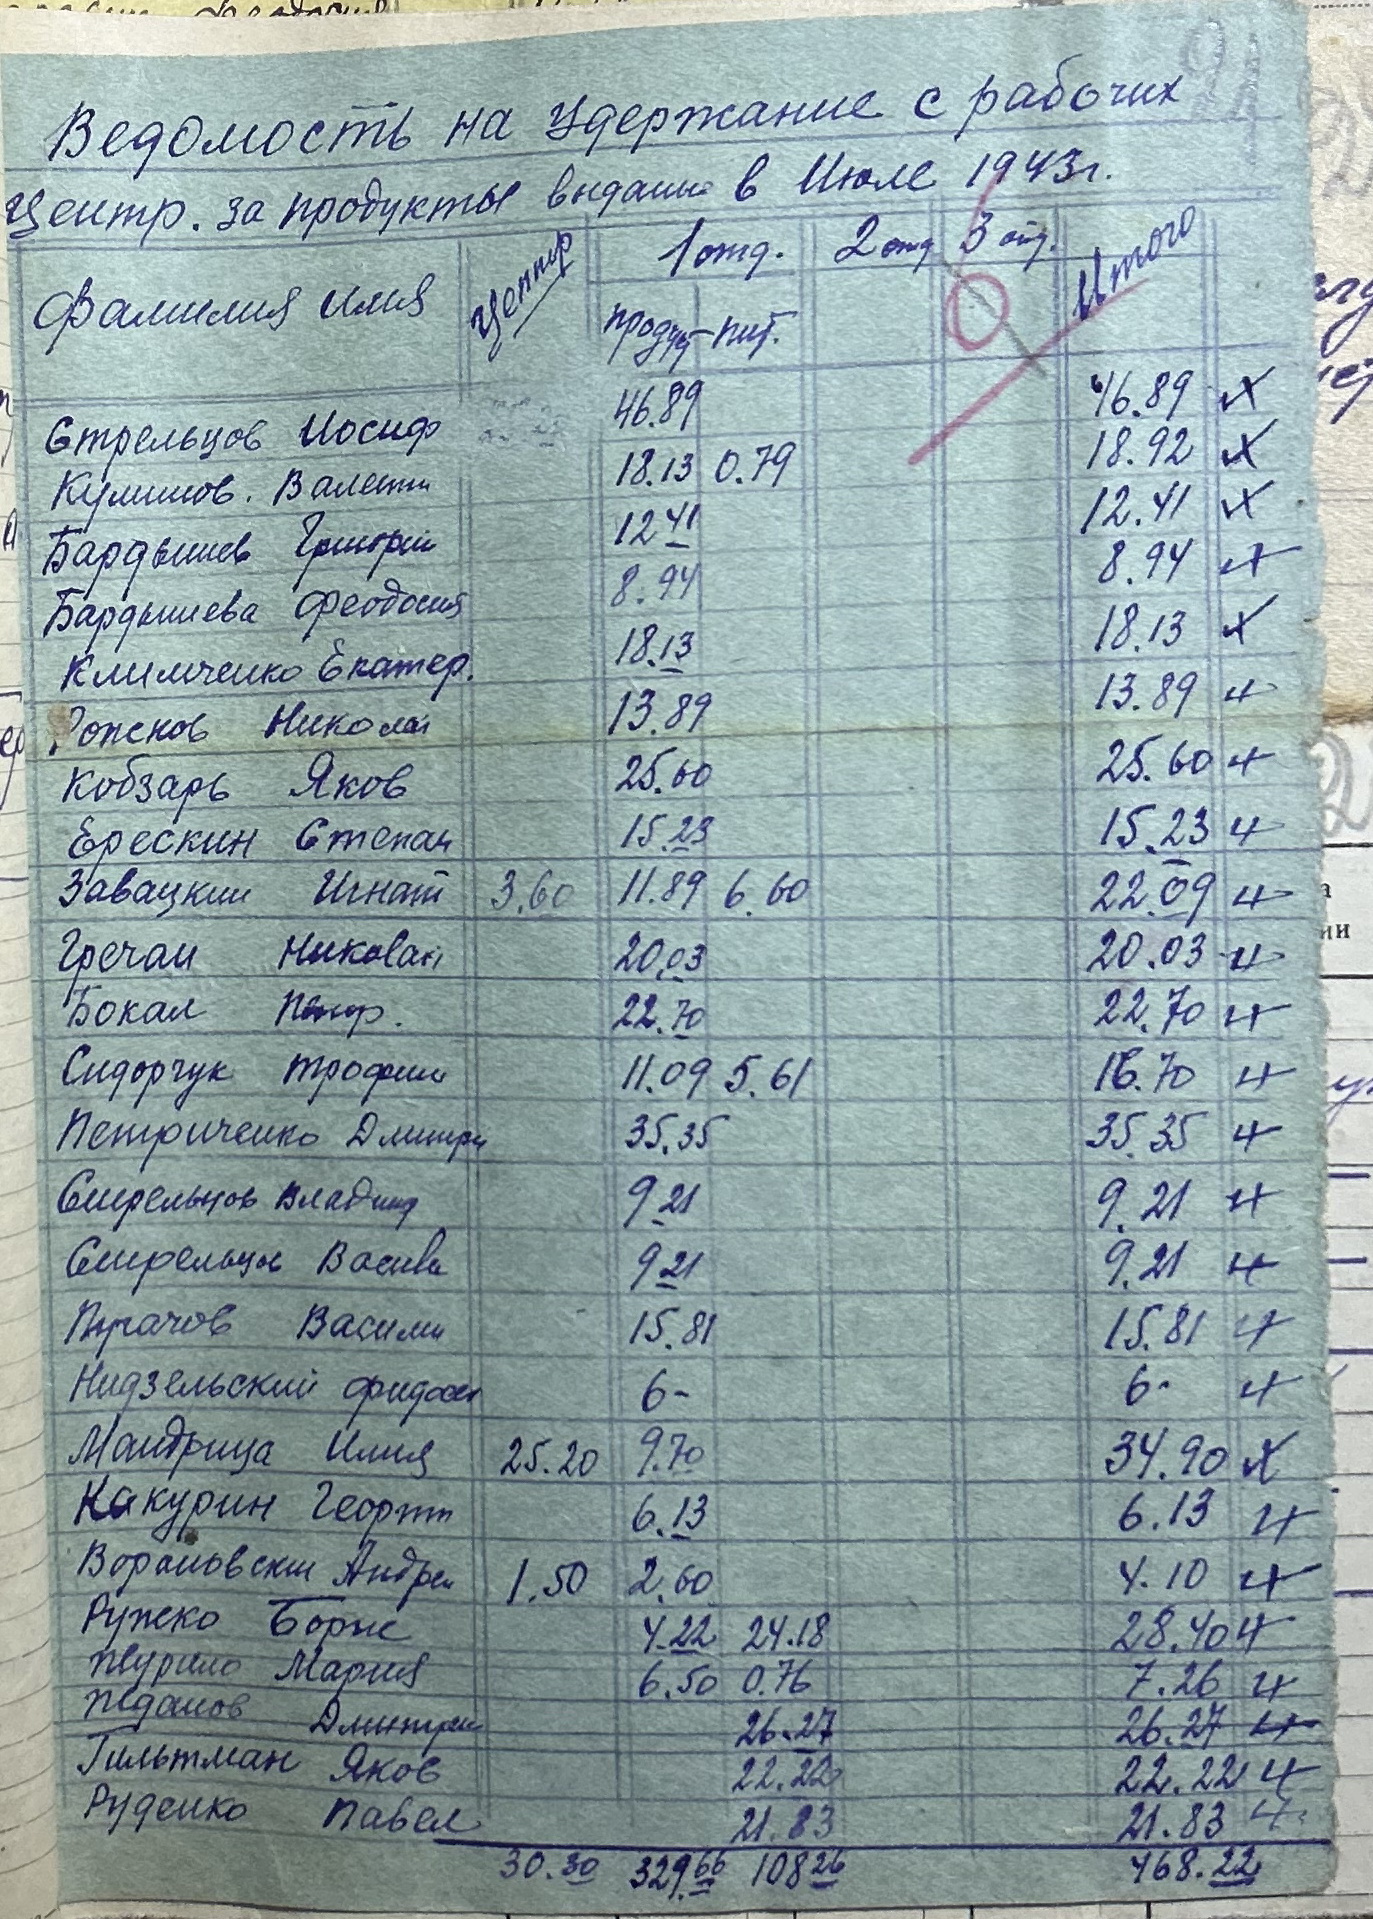 Ведомость на удержание с рабочих
Центр. за продукты выданые в Июле 1943г.
Фамилия Имя Центр 1 отд. 2 отд 3 отд. Итого
продукт пит.
Стрельцов Иосиф 46.89 46.89
Кулишов. Валент 18.13 0.79 18.92
Бардышев Григорий 12 41 12.41
Бардышева Феодосия 8.94 8.94
Климченко Екатер. 18.13 18.13
Рожнов Николай 13.89 13.89
Кобзарь Яков 25.60 25.60
Ерескин Степан 15.23 15.23
Завацкий Игнат 3.60 11.89 6.60 22.09
Гречан 20.03 20.03
Бокал Петр. 22.70 22.70
Сидорчук Трофим 11.09 5.61 16.70
Петриченко Дмитри 35.35 35.35
Стрельцов Владим 9 21 9.21
Стрельцов Василь 9 21 9.21
Пугачов Васили 15.81 15.81
Нидзельский Фидосей 6- 6-
Мандрица Илия 25.20 9.70 34.90
Какурин Георги 6.13 6.13
Ворановски Андреи 1.50 2.60 4.10
Ружско Борис 4.22 24.18 28.40
Журило Мария 6.50 0.76 7.26
Жданов Дмитрий 26.27 26.27
Гильтман Яков 22.22 22.22
Руденко Павел 21.83 21.83
30.30 329.66 108 26 468.22